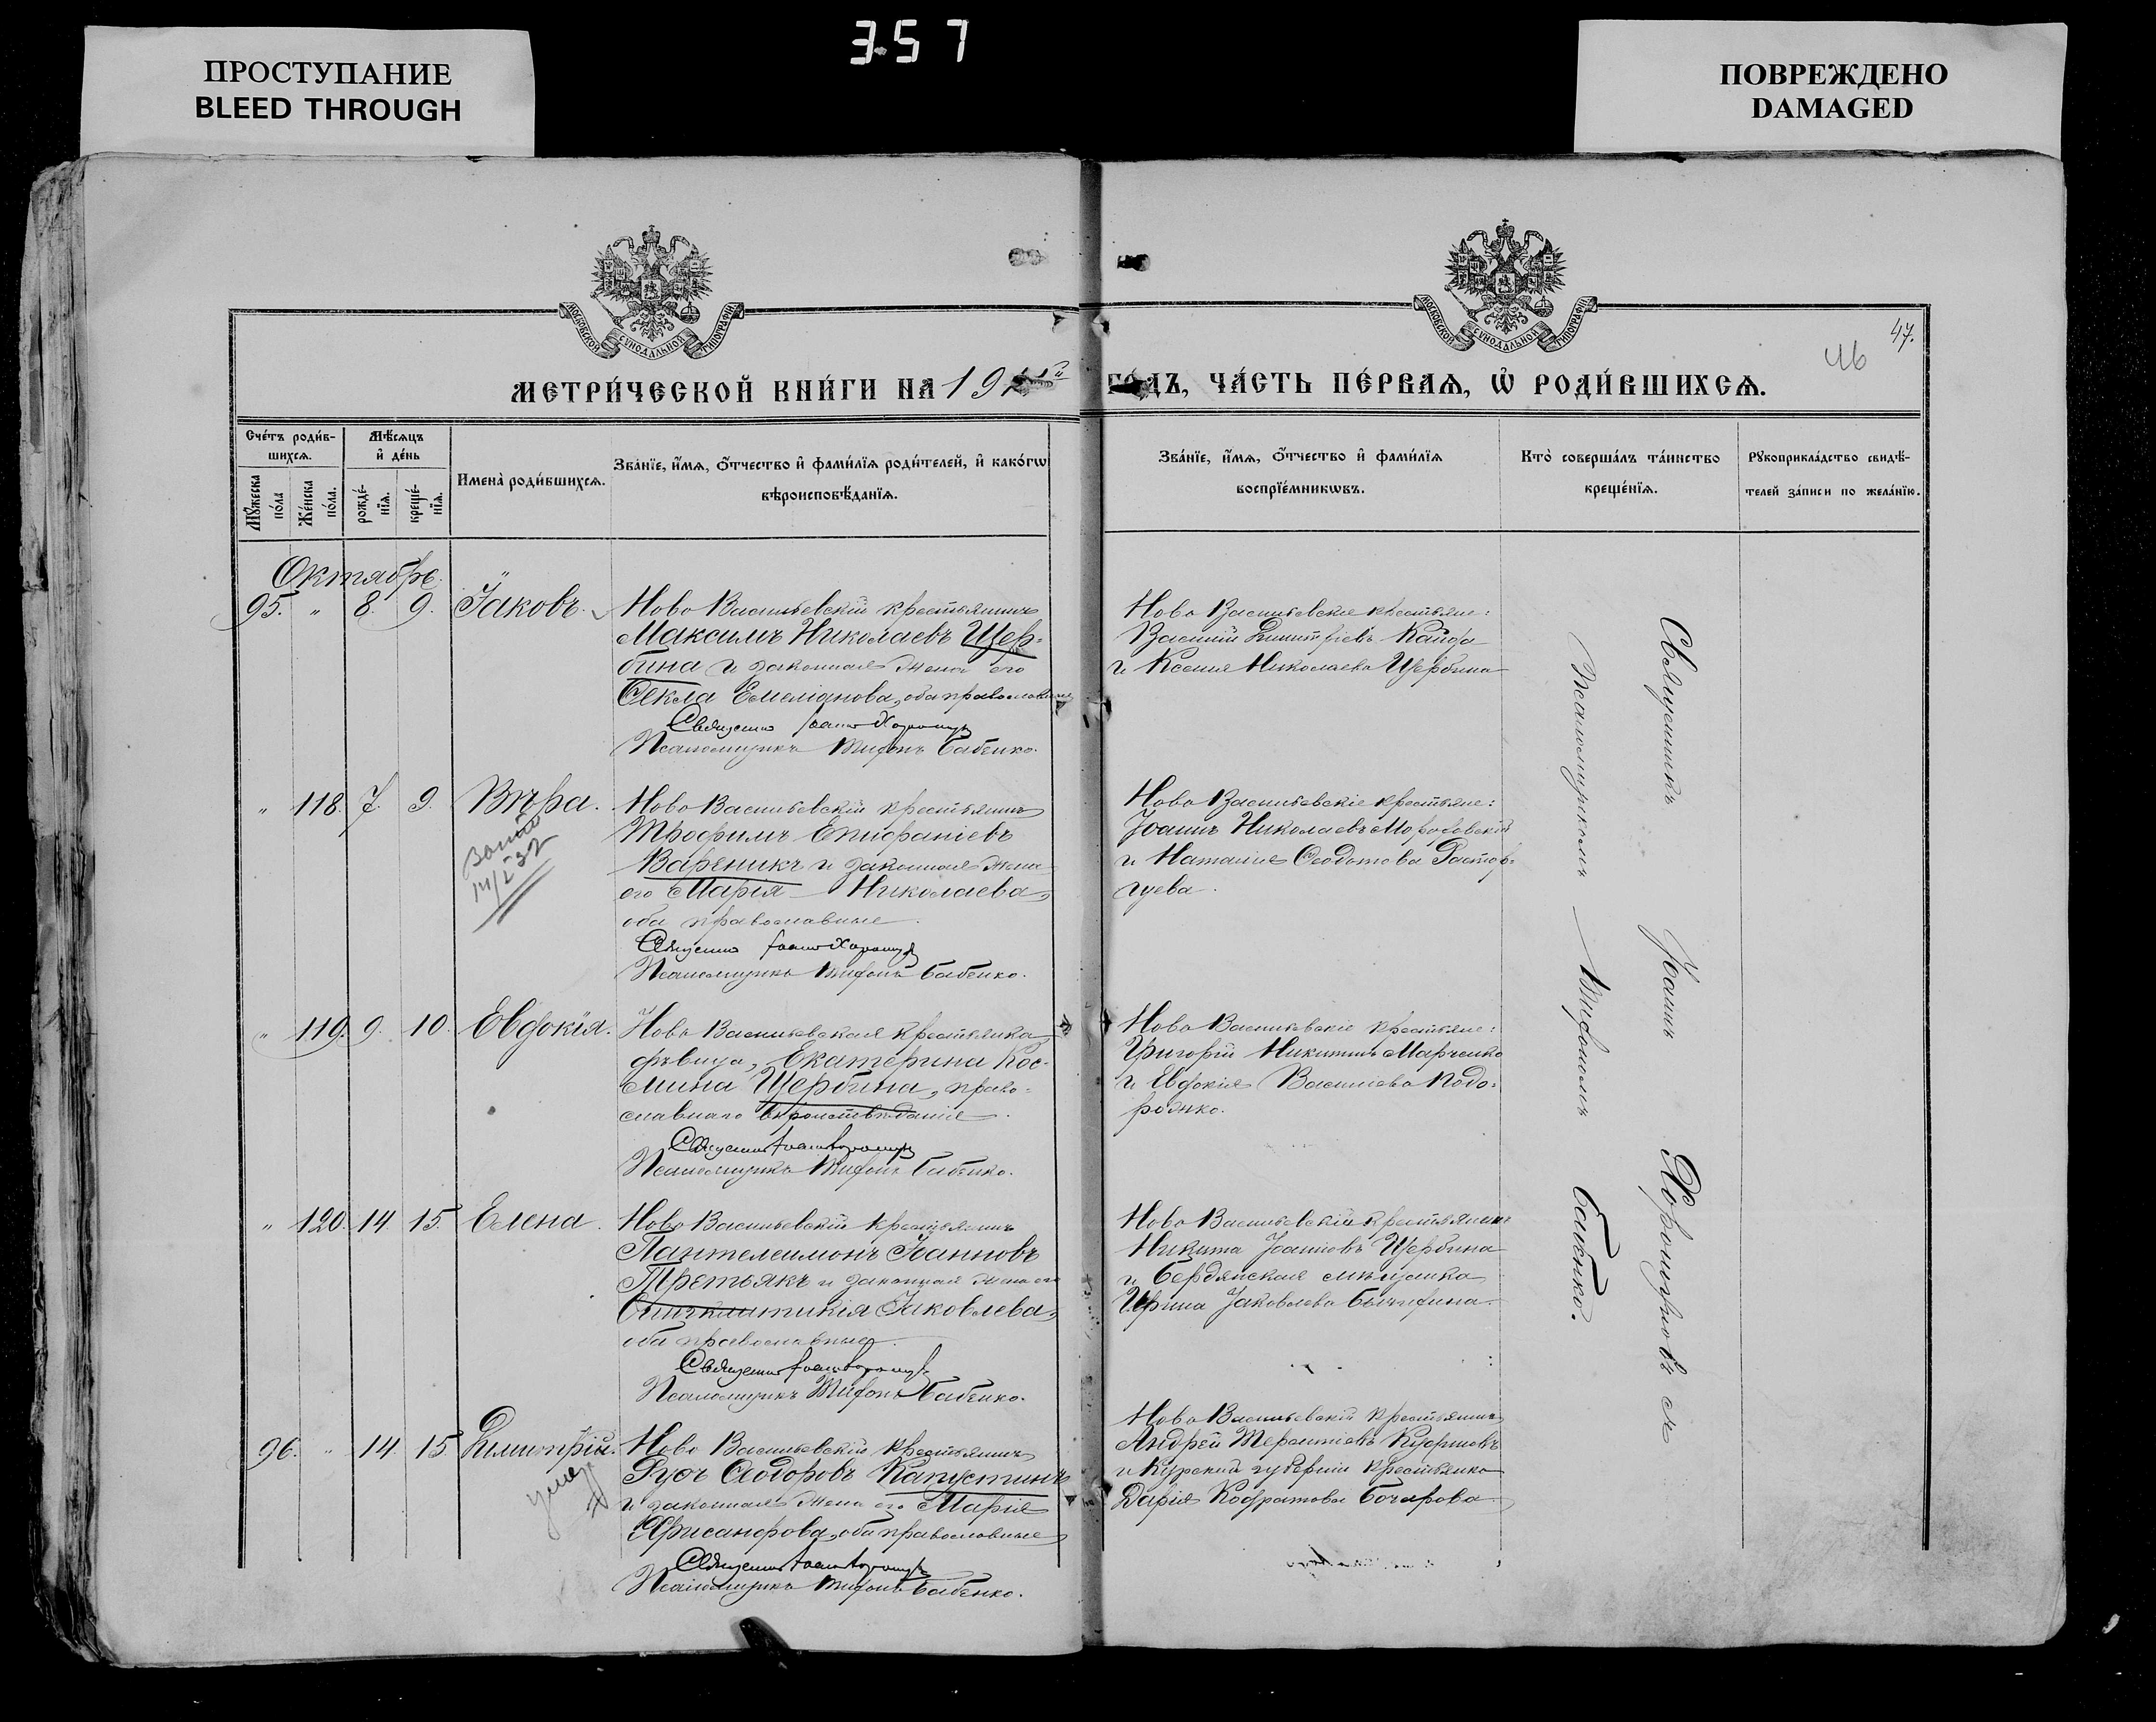 357
ПРОСТУПАНИЕ
BLEED THROUGH
ПОВРЕЖДЕНО
DAMAGED
МОСКОВСКОЙ СУНОДАЛЬНОЙ ТИПОГРАФІИ
МОСКОВСКОЙ СУНОДАЛЬНОЙ ТИПОГРАФІИ
47.
46
МЕТРИ́ЧЕСКОЙ КНИ́ГИ НА 191
ГО́ДЪ, ЧА́СТЬ ПЕ́РВАѦ, Ѡ҆ РОДИ́ВШИХСѦ.
Сче́тъ роди́в-
шихсѧ.
Мꙋ́жеска по́ла
Же́нска по́ла.
Мѣ́сѧцъ
и҆ де́нь
рожде́-нїѧ.
креще́-нїѧ.
И҆мена̀ роди́вшихсѧ.
Зва́нїе, и҆́мѧ, ѻ҆́тчество и҆ фами́лїѧ роди́телей, и҆ како́гѡ
вѣроисповѣ́данїѧ.
Зва́нїе, и҆́мѧ, ѻ҆́тчество и҆ фами́лїѧ
воспрїе́мникѡвъ.
Кто̀ соверша́лъ та́инство
креще́нїѧ.
Рꙋкоприкла́дство свидѣ́-
телей за́писи по жела́нїю.
Октябрь.
95. " 8. 9. Іаковъ.
Ново Васильевскій крестьянинъ
Максимъ Николаевъ Щер-
бина и законная жена его
Ѳекла Емеліанова, оба православные
Священ Іоаннъ Хорошу
Псаломщикъ Тифонъ Бабенко.
Ново Васильевскіе крестьяне:
Василій Димитріевъ Кайда
и Ксенія Николаева Щербина
" 118. 7. 9. Вѣра.
Ново Васильевскій крестьянинъ
Трофимъ Епифаніевъ
Вареникъ и законная жена
его Марія Николаева,
оба православные.
Священ Іоаннъ Хорошу
Псаломщикъ Тифонъ Бабенко.
Ново Васильевскіе крестьяне:
Іоаннъ Николаевъ Морозовскій
и Наталія Ѳеодотова Растор-
гуева.
" 119. 9. 10. Евдокія.
Ново Васильевская крестьянка
дѣвица, Екатерина Кос-
мина Щербина, право-
славнаго вѣроисповѣданія.
Священ Іоаннъ Хорошу
Псаломщикъ Тифонъ Бабенко.
Ново Васильевскіе крестьяне:
Григорій Никитинъ Марченко
и Евдокія Василіева Подо-
рожко.
" 120. 14. 15. Елена.
Ново Васильевскій крестьянинъ
Пантелеимонъ Іоанновъ
Третьякъ и законная жена его
Синклитикія Іаковлева,
оба православные.
Священ Іоаннъ Хорошу
Псаломщикъ Тифонъ Бабенко.
Ново Васильевскій крестьянинъ
Никита Іоанновъ Щербина
и Бердянская мѣщанка
Ирина Іаковлева
96. " 14. 15. Димитрій.
умер
Ново Васильевскій крестьянинъ
Руфъ Ѳеодоровъ Капустинъ
и законная жена его Марія
Хрисанфова, оба православные
Священ Іоаннъ Хорошу
Псаломщикъ Тифонъ Бабенко.
Ново Васильевскій крестьянинъ
Андрей Терентіевъ
и Курской губерніи крестьянка
Дарія Кодратова Бочарова.
Священникъ Іоаннъ Хорошуновъ съ
Псаломщикомъ Тифономъ Бабенко.